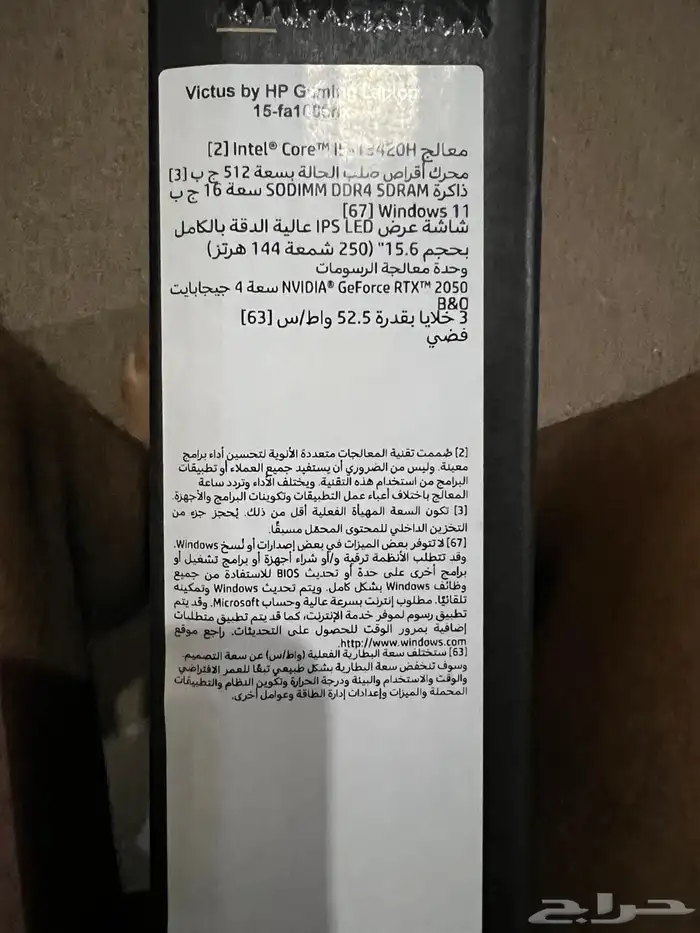 Victus by HP Gaming Laptop
معالج Intel® Core™ i5-13420H [2]
محرك أقراص صلب الحالة بسعة 512 ج ب [3]
ذاكرة SODIMM DDR4 SDRAM سعة 16 ج ب
Windows 11 [67]
شاشة عرض IPS LED عالية الدقة بالكامل
بحجم 15.6" (250 شمعة 144 هرتز)
وحدة معالجة الرسومات
NVIDIA® GeForce RTX™ 2050 سعة 4 جيجابايت
B&O
3 خلايا بقدرة 52.5 واط/س [63]
فضي
[2] صُممت تقنية المعالجات متعددة الأنوية لتحسين أداء برامج
معينة. وليس من الضروري أن يستفيد جميع العملاء أو تطبيقات
البرامج من استخدام هذه التقنية. ويختلف الأداء وتردد ساعة
المعالج باختلاف أعباء عمل التطبيقات وتكوينات البرامج والأجهزة.
[3] تكون السعة المهيأة الفعلية أقل من ذلك. يُحجز جزء من
التخزين الداخلي للمحتوى المحمّل مسبقًا.
[67] لا تتوفر بعض الميزات في بعض إصدارات أو نُسخ Windows.
وقد تتطلب الأنظمة ترقية و/أو شراء أجهزة أو برامج تشغيل أو
برامج أخرى على حدة أو تحديث BIOS للاستفادة من جميع
وظائف Windows بشكل كامل. ويتم تحديث Windows وتمكينه
تلقائيًا. مطلوب إنترنت بسرعة عالية وحساب Microsoft. وقد يتم
تطبيق رسوم لموفر خدمة الإنترنت، كما قد يتم تطبيق متطلبات
إضافية بمرور الوقت للحصول على التحديثات. راجع موقع
http://www.windows.com.
[63] ستختلف سعة البطارية الفعلية (واط/س) عن سعة التصميم.
وسوف تنخفض سعة البطارية بشكل طبيعي تبعًا للعمر الافتراضي
والوقت والاستخدام والبيئة ودرجة الحرارة وتكوين النظام والتطبيقات
المحملة والميزات وإعدادات إدارة الطاقة وعوامل أخرى.
حراج